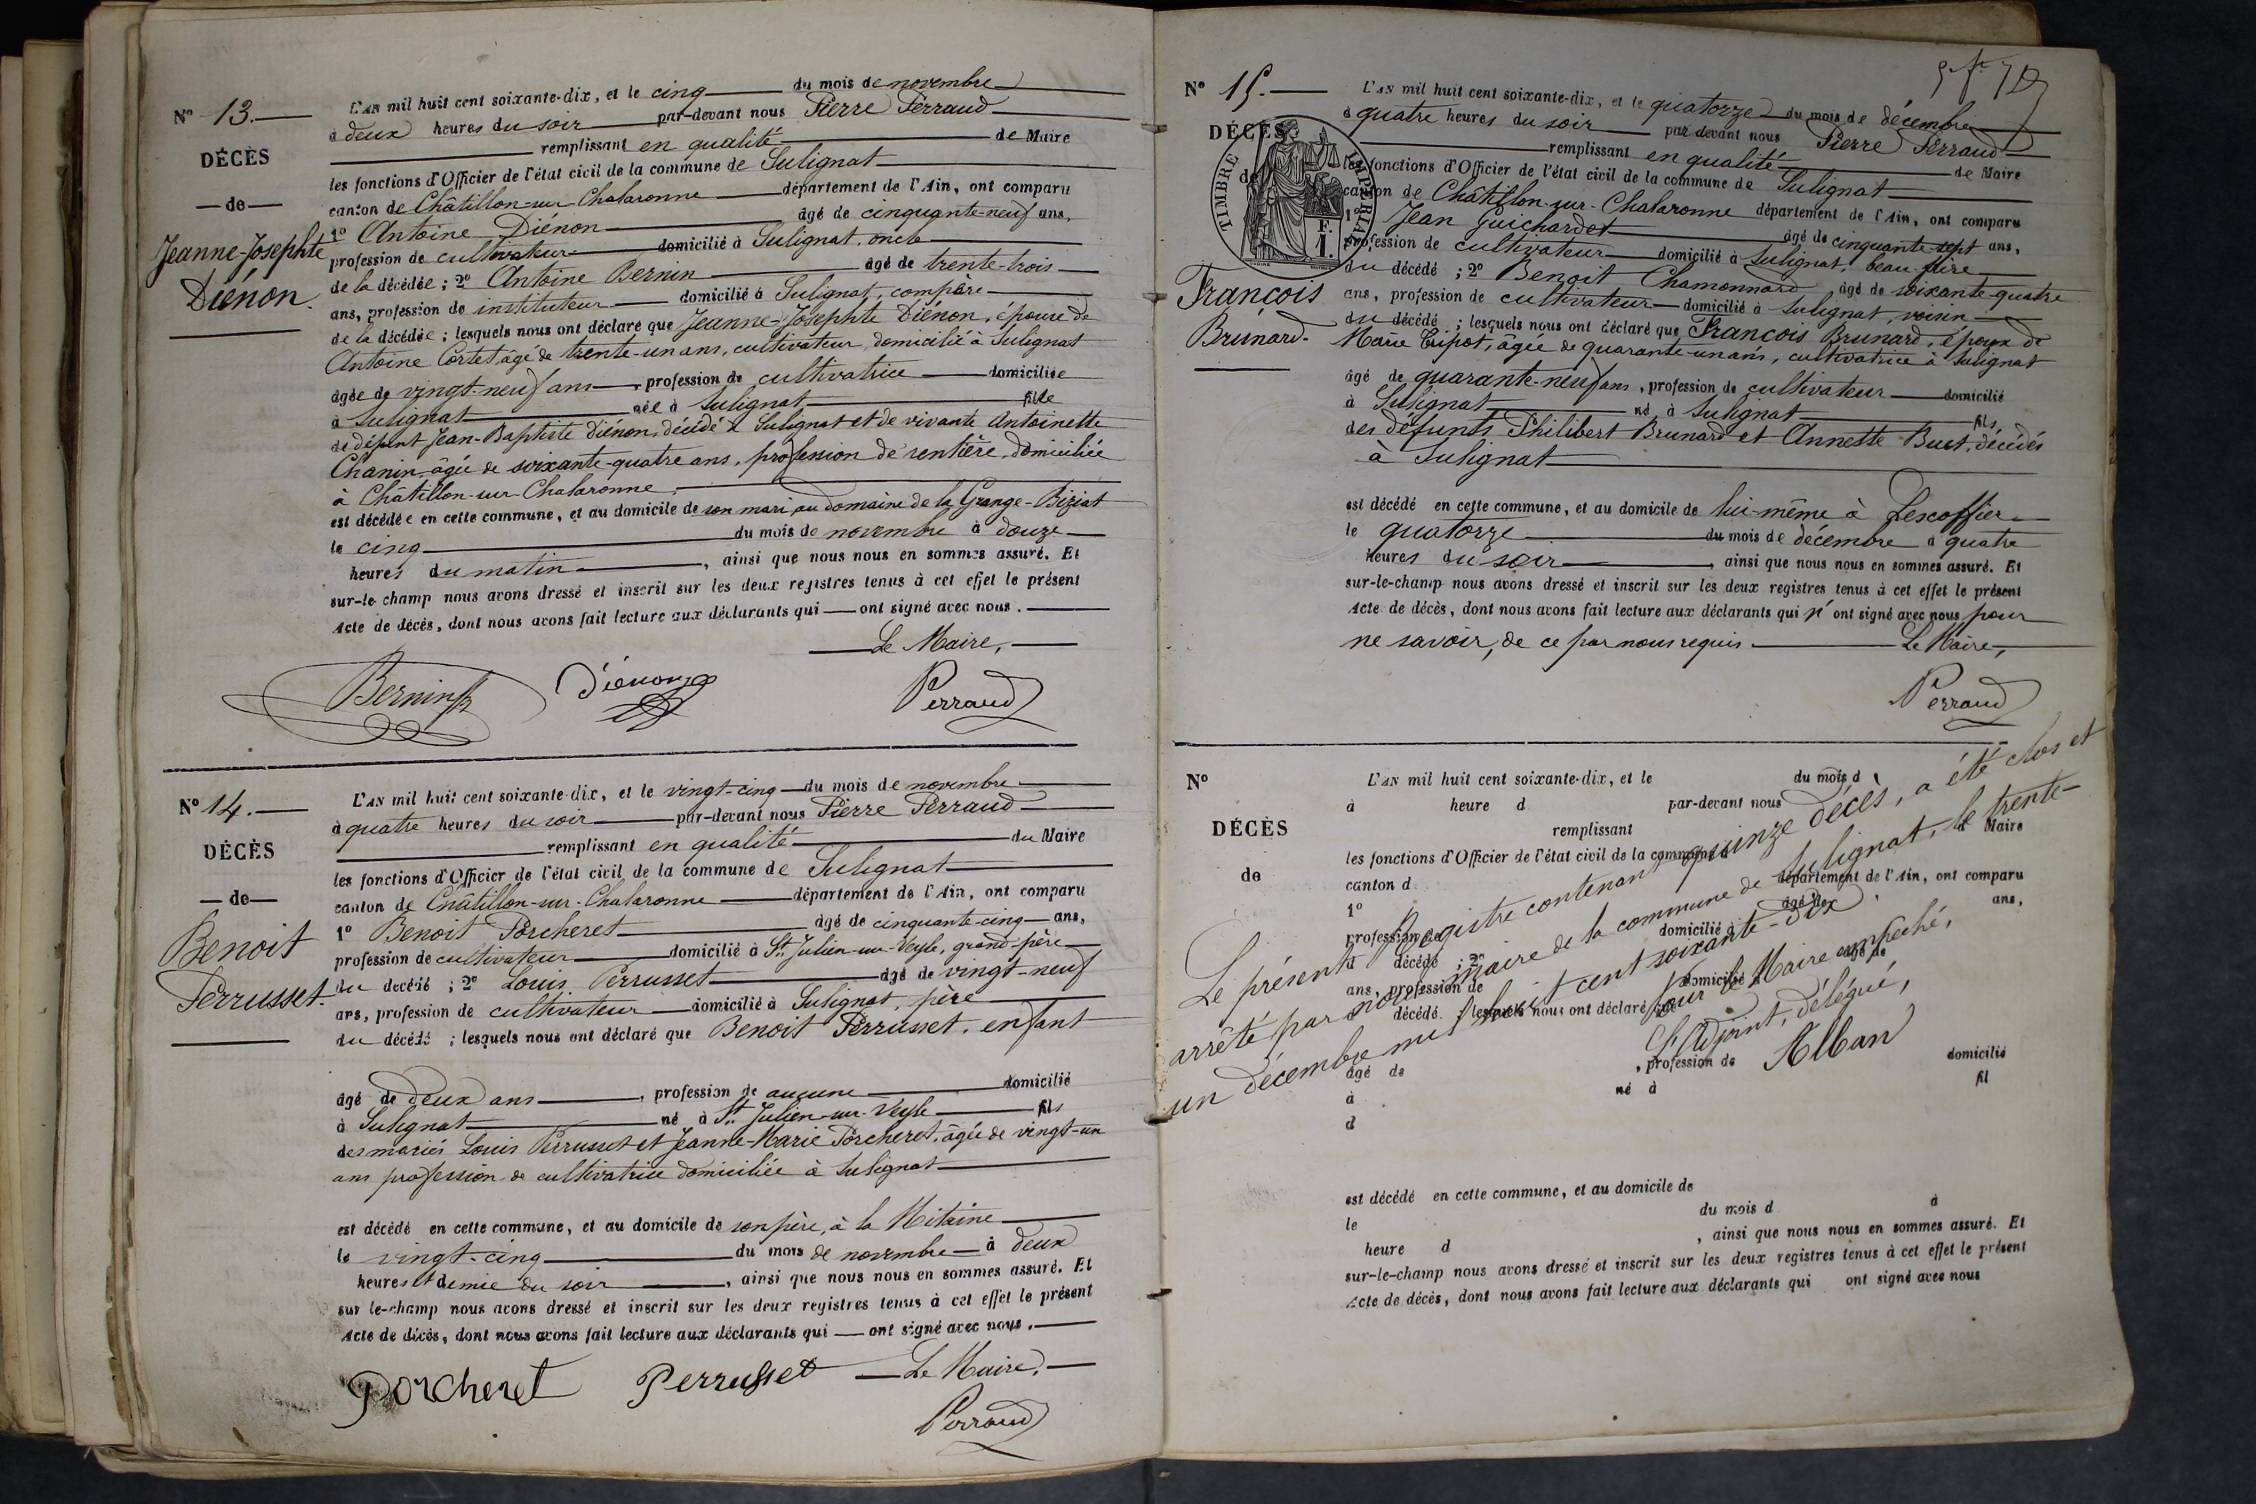 N° 13.
DÉCÈS
de
Jeanne-Josephte
Diénon.
L'AN mil huit cent soixante-dix, et le cinq du mois de novembre
à deux heures du soir par-devant nous Pierre Perraud
remplissant en qualité de Maire
les fonctions d'Officier de l'état civil de la commune de Sulignat
canton de Châtillon-sur-Chalaronne département de l'Ain, ont comparu
1° Antoine Diénon âgé de cinquante-neuf ans,
profession de cultivateur domicilié à Sulignat, oncle
de la décédée ; 2° Antoine Bernin âgé de trente-trois
ans, profession de instituteur domicilié à Sulignat, compère
de la décédée ; lesquels nous ont déclaré que Jeanne-Josephte Diénon, épouse de
Antoine Cortet âgé de trente-un ans, cultivateur, domicilié à Sulignat
âgée de vingt-neuf ans, profession de cultivatrice domiciliée
à Sulignat née à Sulignat fille
de défunt Jean-Baptiste Diénon, décédé à Sulignat et de vivante Antoinette
Chanin, âgée de soixante-quatre ans, profession de rentière, domiciliée
à Châtillon-sur-Chalaronne,
est décédée en cette commune, et au domicile de son mari, au domaine de la Grange-Biziat
le cinq du mois de novembre à douze
heures du matin, ainsi que nous nous en sommes assuré. Et
sur-le champ nous avons dressé et inscrit sur les deux registres tenus à cet effet le présent
Acte de décès, dont nous avons fait lecture aux déclarants qui ont signé avec nous.
Le Maire,
Bernin Diénon Perraud
N° 14.
DÉCÈS
de
Benoit
Perrusset.
L'AN mil huit cent soixante-dix, et le vingt-cinq du mois de novembre
à quatre heures du soir par-devant nous Pierre Perraud
remplissant en qualité du Maire
les fonctions d'Officier de l'état civil de la commune de Sulignat
canton de Châtillon-sur-Chalaronne département de l'Ain, ont comparu
1° Benoit Porcheret âgé de cinquante-cinq ans,
profession de cultivateur domicilié à St Julien-sur-Veyle, grand-père
du décédé ; 2° Louis Perrusset âgé de vingt-neuf
ans, profession de cultivateur domicilié à Sulignat, père
du décédé ; lesquels nous ont déclaré que Benoit Perrusset, enfant
âgé de deux ans, profession de aucune domicilié
à Sulignat né à St Julien-sur-Veyle fils
des mariés Louis Perrusset et Jeanne-Marie Porcheret, âgée de vingt-un
ans profession de cultivatrice domiciliée à Sulignat
est décédé en cette commune, et au domicile de son père, à la Mitaine
le vingt-cinq du mois de novembre à deux
heures et demie du soir, ainsi que nous nous en sommes assuré. Et
sur le-champ nous avons dressé et inscrit sur les deux registres tenus à cet effet le présent
Acte de décès, dont nous avons fait lecture aux déclarants qui ont signé avec nous.
Le Maire,
Porcheret Perrusset
Perraud
N° 15.
DÉCÈS
de
TIMBRE IMPERIAL
F. 1.
François
Brunard.
L'AN mil huit cent soixante-dix, et le quatorze du mois de décembre
à quatre heures du soir par devant nous Pierre Perraud
remplissant en qualité de Maire
les fonctions d'Officier de l'état civil de la commune de Sulignat
canton de Châtillon-sur-Chalaronne département de l'Ain, ont comparu
1° Jean Guichardot âgé de cinquante-sept ans,
profession de cultivateur domicilié à Sulignat, beau-frère
du décédé ; 2° Benoit Chamonnard âgé de soixante-quatre
ans, profession de cultivateur domicilié à Sulignat, voisin
du décédé ; lesquels nous ont déclaré que François Brunard, époux de
Marie Tripot, âgée de quarante-un ans, cultivatrice à Sulignat
âgé de quarante-neuf ans, profession de cultivateur domicilié
à Sulignat né à Sulignat fils
des défunts Philibert Brunard et Annette Buet, décédés
à Sulignat
est décédé en cette commune, et au domicile de lui-même à Lescoffier
le quatorze du mois de décembre à quatre
heures du soir, ainsi que nous nous en sommes assuré. Et
sur-le-champ nous avons dressé et inscrit sur les deux registres tenus à cet effet le présent
Acte de décès, dont nous avons fait lecture aux déclarants qui n'ont signé avec nous pour
ne savoir, de ce par nous requis Le Maire,
Perraud
N°
DÉCÈS
de
L'AN mil huit cent soixante-dix, et le du mois d
à heure d par-devant nous
remplissant d Maire
les fonctions d'Officier de l'état civil de la commune d
canton d département de l'Ain, ont comparu
1° âgé de ans,
profession de domicilié à
d décédé ; 2° âgé de
ans, profession de domicilié à
d décédé ; lesquels nous ont déclaré que
âgé de , profession de domicilié
à né à fil
d
est décédé en cette commune, et au domicile de
le du mois d à
heure d , ainsi que nous nous en sommes assuré. Et
sur-le-champ nous avons dressé et inscrit sur les deux registres tenus à cet effet le présent
Acte de décès, dont nous avons fait lecture aux déclarants qui ont signé avec nous
Le présent Registre contenant quinze décès, a été clos et
arrêté par nous maire de la commune de Sulignat, le trente-
un décembre mil huit cent soixante-dix.
Pour le Maire empêché,
L'Adjoint, délégué,
Alban